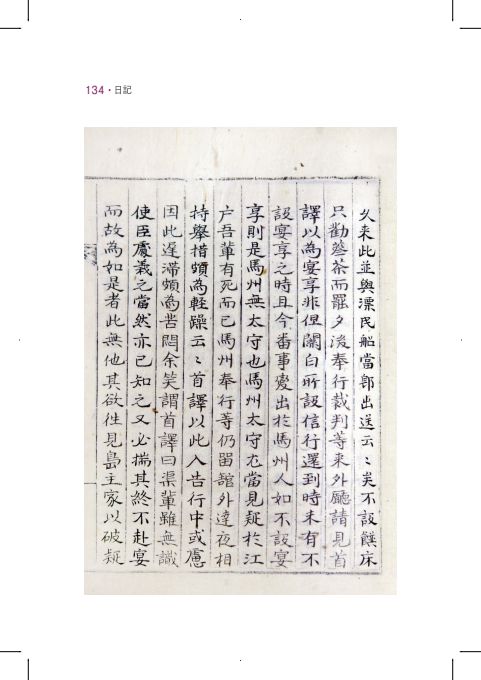 134・日記
久來此並與漂民船當郞出送云〻矣不設饌床
只勸蔘茶而罷夕後奉行裁判等來外廳請見首
譯以爲宴享非但關白所設信行還到時未有不
設宴享之時且今番事變出於馬州人如不設宴
享則是馬州無太守也馬州太守尤當見疑於江
户吾輩有死而已馬州奉行等仍留舘外達夜相
持擧措頗爲輕躁云〻首譯以此入告行中或慮
因此遲滯頗爲苦悶余笑謂首譯曰渠輩雖無識
使臣處義之當然亦已知之又必揣其終不赴宴
而故爲如是者此無他其欲徃見島主家以破疑